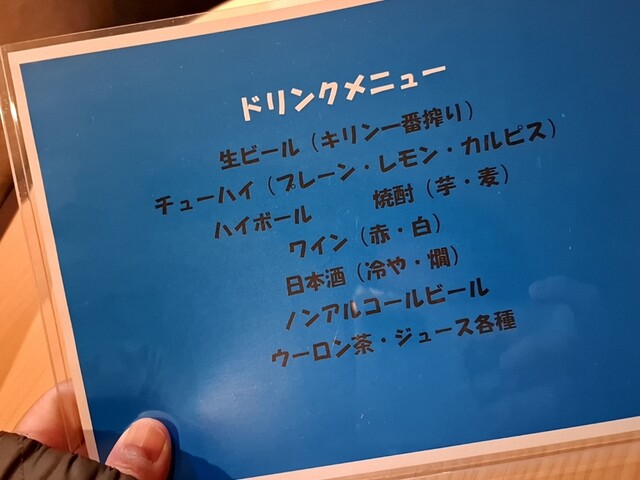 ドリンクメニュー
生ビール（キリン一番搾り）
チューハイ（プレーン・レモン・カルピス）
ハイボール　焼酎（芋・麦）
ワイン（赤・白）
日本酒（冷や・燗）
ノンアルコールビール
ウーロン茶・ジュース各種